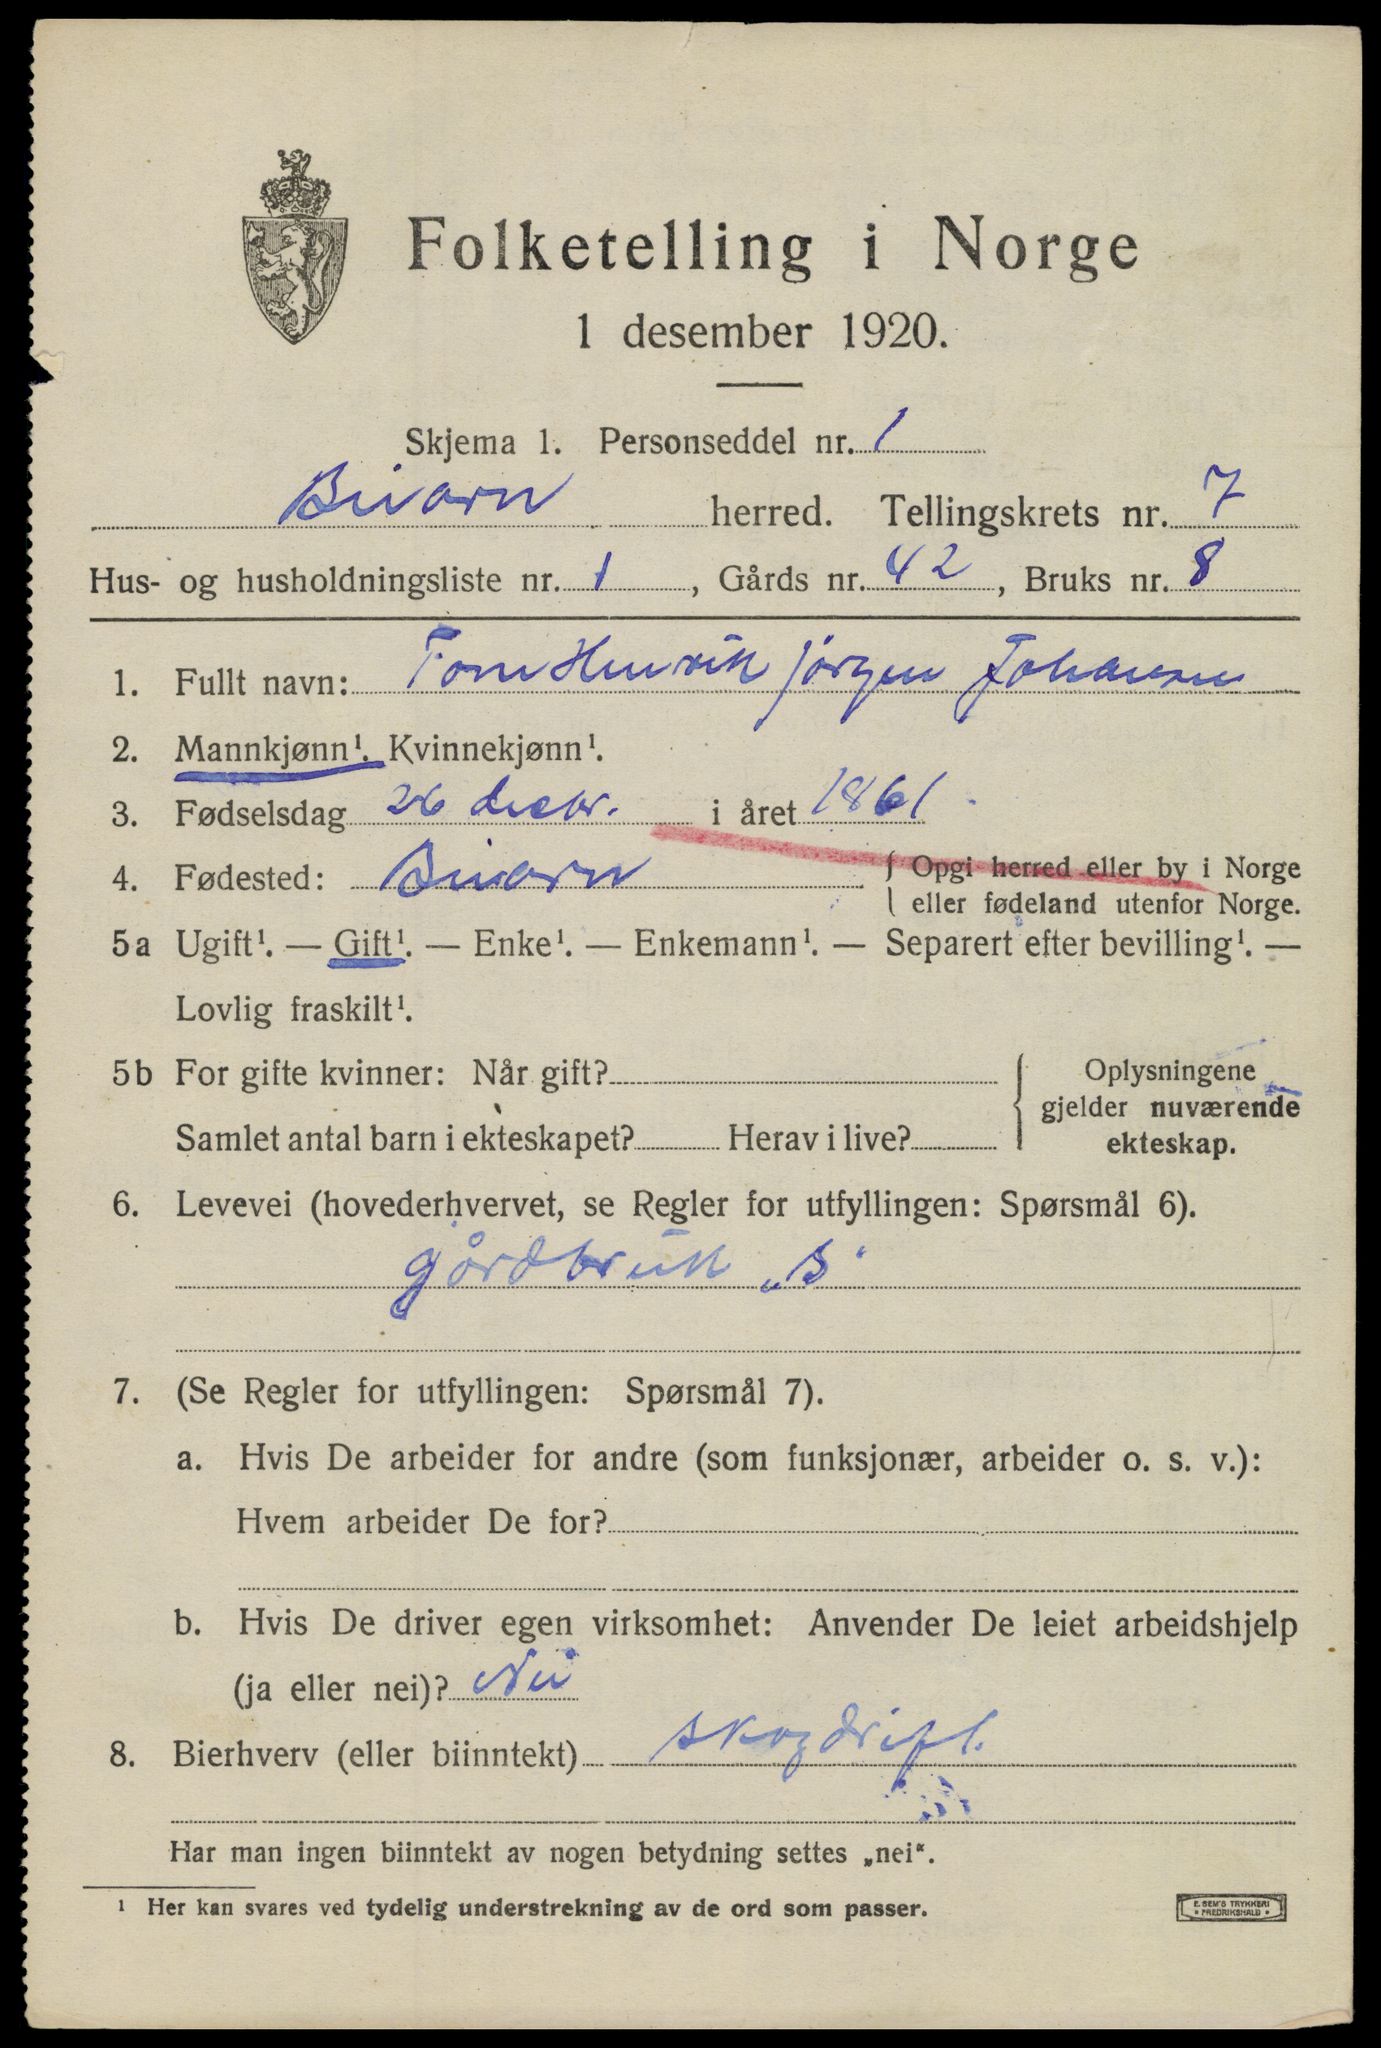 Folketelling i Norge
1 desember 1920.
Skjema 1. Personseddel nr. 1
Beiarn herred. Tellingskrets nr. 7
Hus- og husholdningsliste nr. 1, Gårds nr. 42, Bruks nr. 8
1. Fullt navn: Henrik Jörgen Johansen
2. Mannkjønn¹. Kvinnekjønn¹.
3. Fødselsdag 26 decbr. i året 1861
4. Fødested: Beiarn { Opgi herred eller by i Norge
eller fødeland utenfor Norge.
5a Ugift¹. — Gift¹. — Enke¹. — Enkemann¹. — Separert efter bevilling¹. —
Lovlig fraskilt¹.
5b For gifte kvinner: Når gift? { Oplysningene
gjelder nuværende
Samlet antal barn i ekteskapet? Herav i live? ekteskap.
6. Levevei (hovederhvervet, se Regler for utfyllingen: Spørsmål 6).
gårdbruk „S"
7. (Se Regler for utfyllingen: Spørsmål 7).
a. Hvis De arbeider for andre (som funksjonær, arbeider o. s. v.):
Hvem arbeider De for?
b. Hvis De driver egen virksomhet: Anvender De leiet arbeidshjelp
(ja eller nei)? Nei
8. Bierhverv (eller biinntekt) skogdrift.
Har man ingen biinntekt av nogen betydning settes „nei".
¹ Her kan svares ved tydelig understrekning av de ord som passer.
E. SEM'S TRYKKERI
* FREDRIKSHALD *